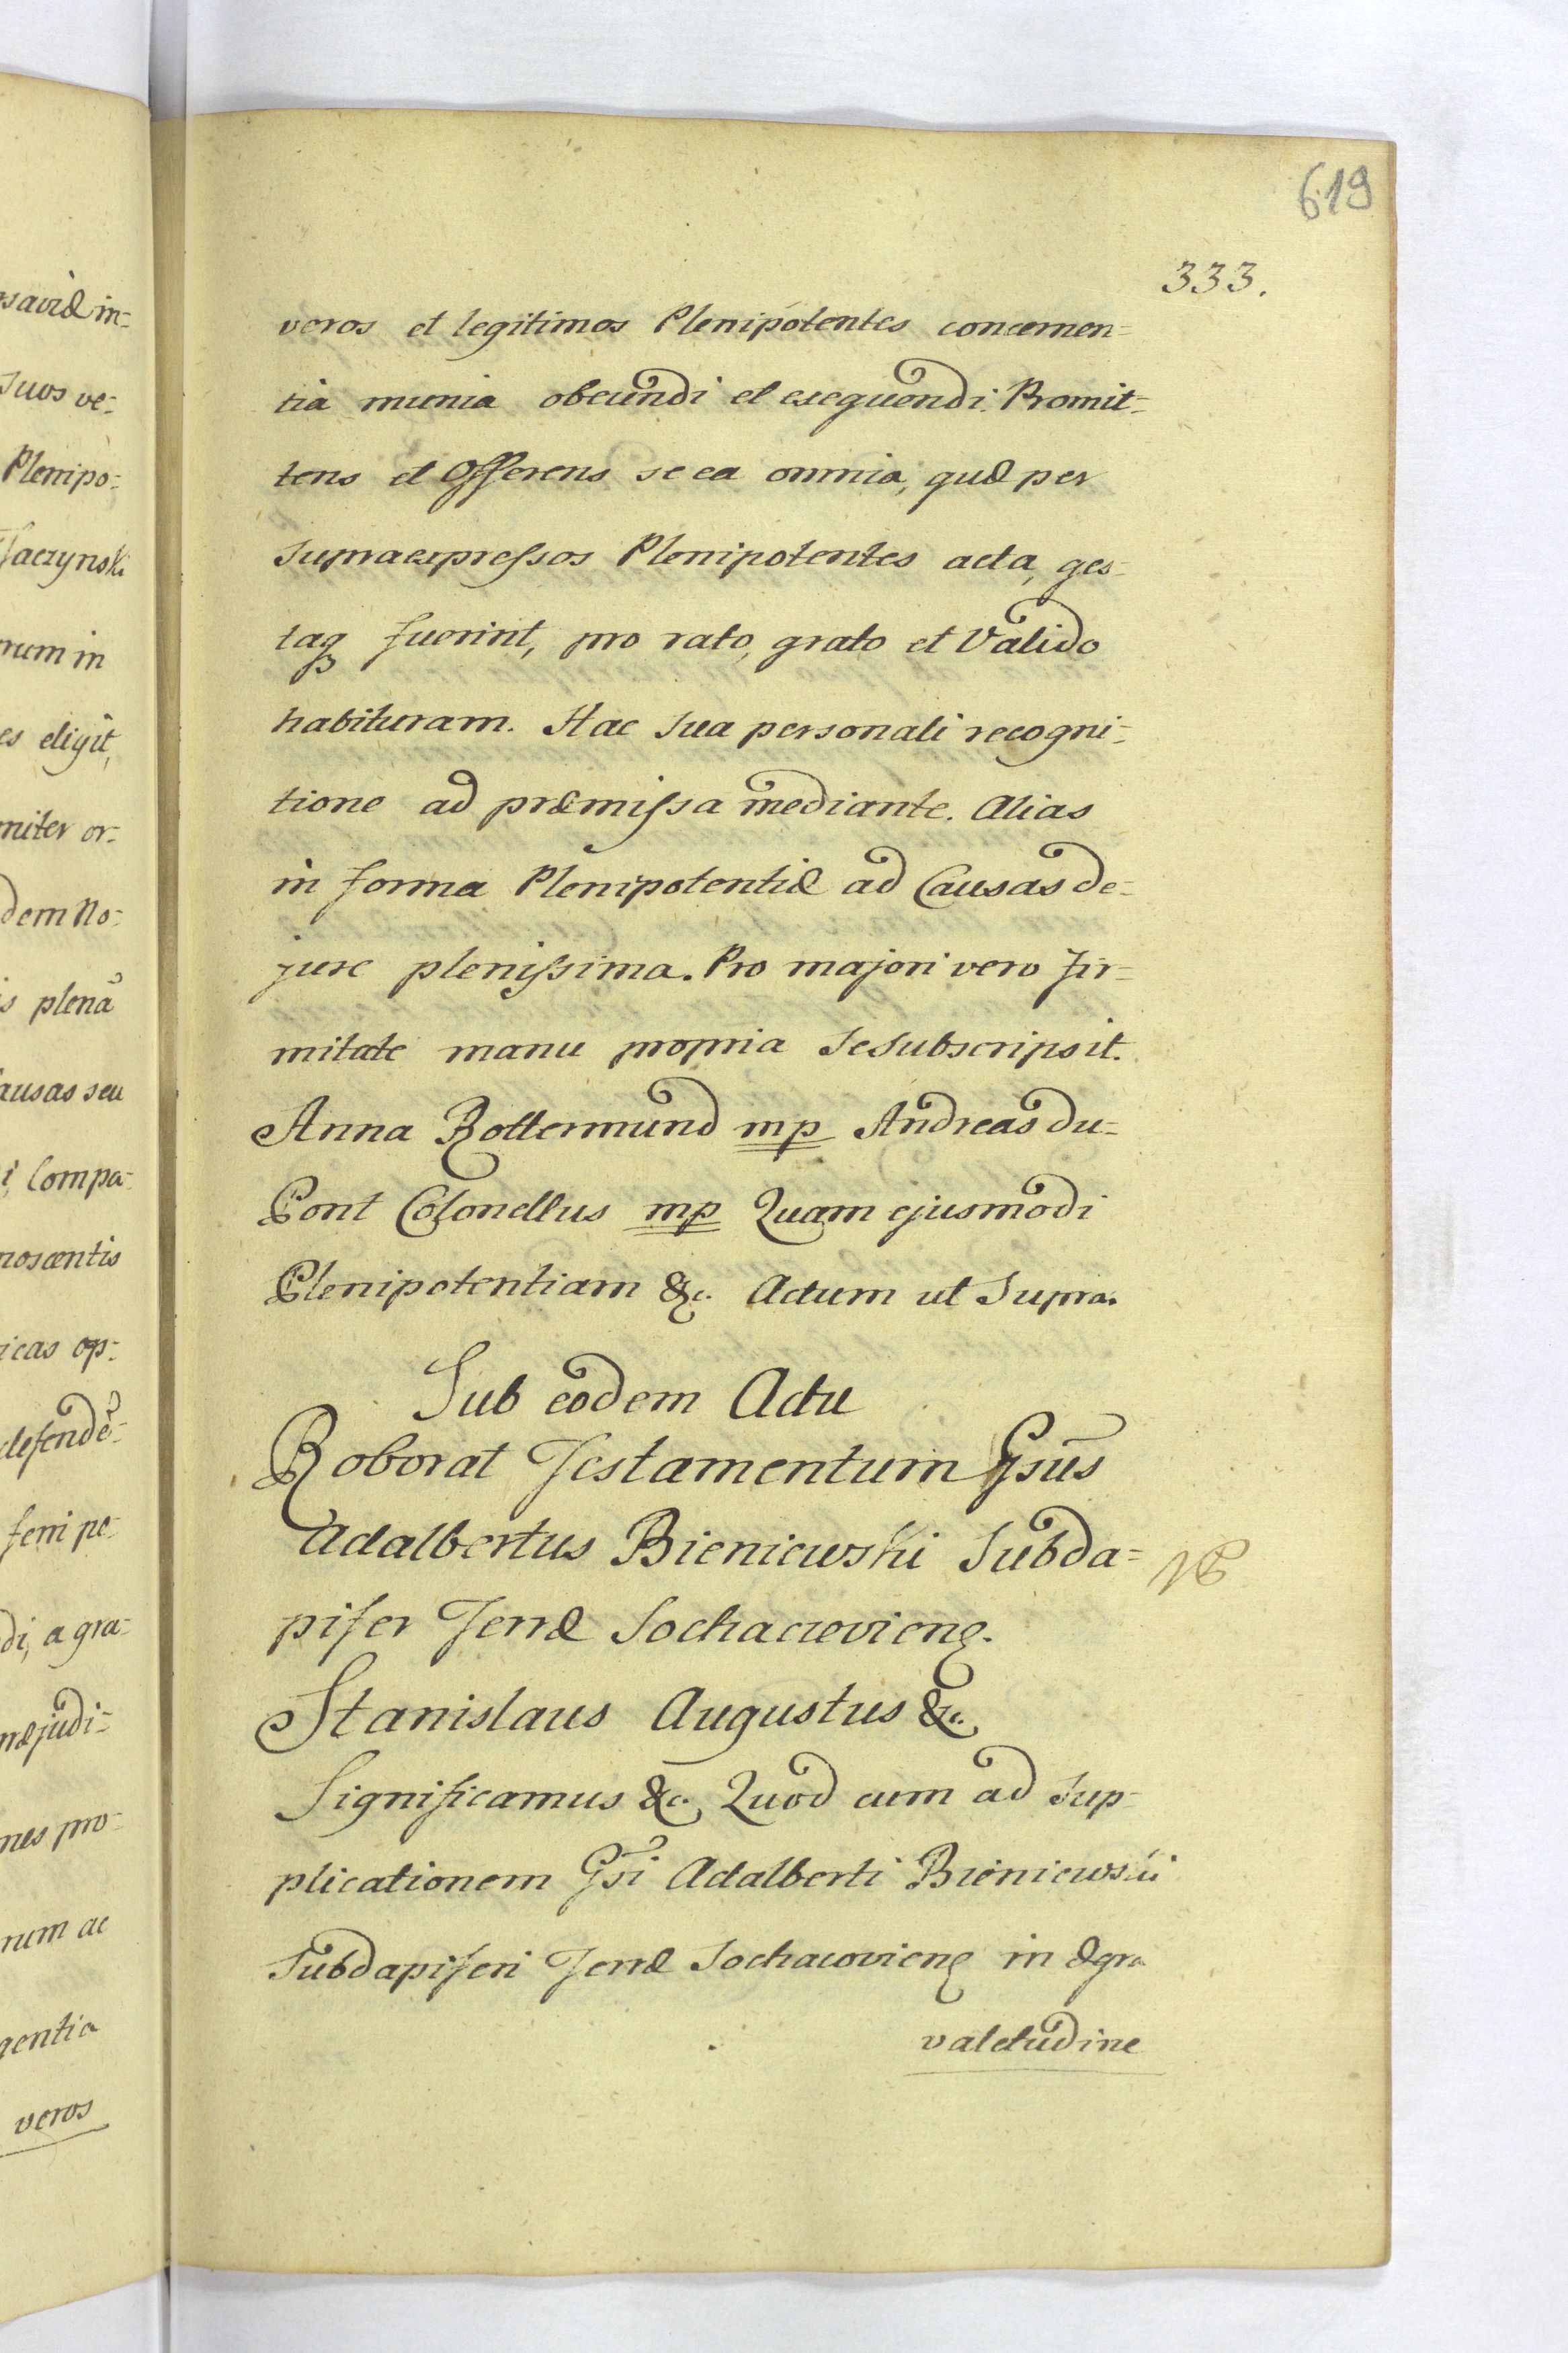 619
333.
veros et legitimos Plenipotentes concernen=
tia munia obeundi et exequendi. Promit=
tens et Offerens se ea omnia, quæ per
Supraexpreſsos Plenipotentes acta, ges=
taq fuerint, pro rato, grato et Valido
habituram. Hac sua personali recogni=
tione ad præmiſsa mediante. Alias
in forma Plenipotentiæ ad Causas de=
jure pleniſsima. Pro majori vero fir=
mitate manu propria se Subscripsit.
Anna Rottermund mp Andreas du=
Pont Colonellus mp Quam ejusmodi
Plenipotentiam &c. Actum ut Supra.
Sub eodem Actu
Roborat Testamentum Gsus
Adalbertus Bieniewski Subda=
pifer Terræ Sochaczevieng.
Stanislaus Augustus &c.
Significamus &c. Quod cum ad Sup=
plicationem Gsi Adalberti Bieniewski
Subdapiferi Terræ Sochaczovieng in ægra
valetudine
saviæ in=
Suos ve=
Plenipo=
num in
es eligit,
niter or=
dem No=
is plenã
ausas seu
i, Compa=
noscentis
icas op=
defendẽ=
feri pe=
di, a gra=
næjudi=
nes pro=
num ac
gentia
veros